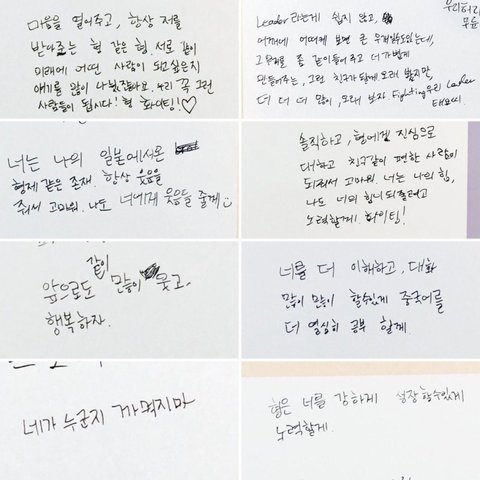 마음을 열어주고, 항상 저를
받아주는 형 같은 형. 서로 같이
미래에 어떤 사람이 되고싶은지
얘기를 많이 나눴잖아요. 우리 꼭 그런
사람들이 됩시다! 형 화이팅!♡
우리허리
Leader라는게 쉽지 않고,
어깨에 어떠케 보면 큰 무게일수도있는데,
그무게를 좀 같이들어주고 더 가볍게
만들어주는, 그런 친구가 될게 오래 봤지만,
더 더 더 많이, 오래 보자. Fighting 우리 Leader
너는 나의 일본에서온
형제 같은 존재. 항상 웃음을
줘서 고마워. 나도 너에게 웃음을 줄게
솔직하고, 형에겐 진심으로
대하고 친구같이 편한 사람이
되줘서 고마워 너는 나의 힘,
나도 너의 힘이 되려고
노력할게! 화이팅!
같이
앞으로도 많이 웃고,
행복하자.
너를 더 이해하고, 대화
많이 많이 할수있게 중국어를
더 열심히 공부 할게
네가 누군지 까먹지마
형은 너를 강하게 성장할수있게
노력할게.